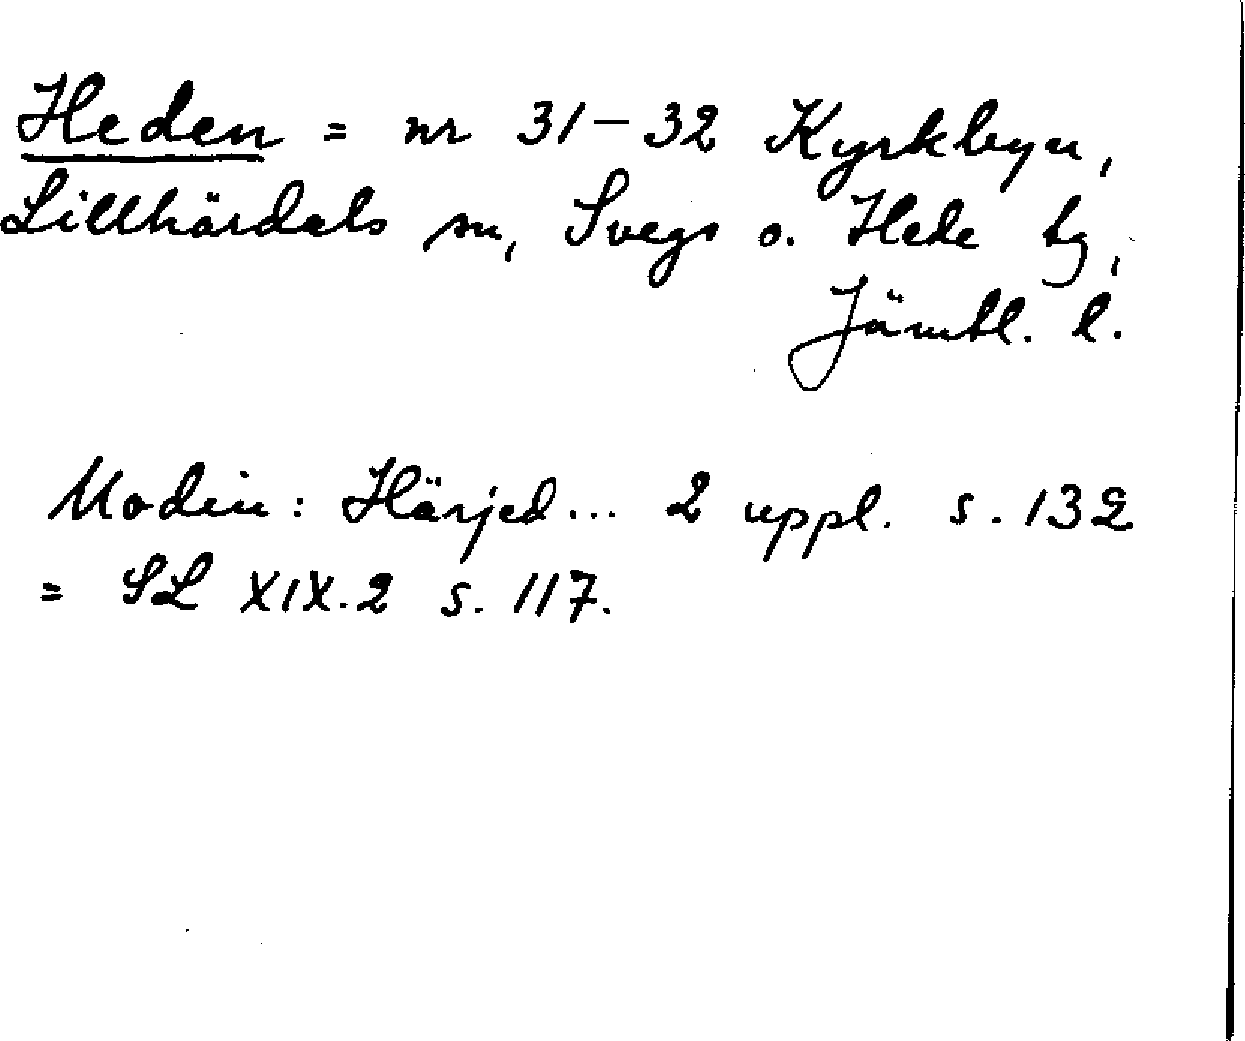 Heden = nr 31-32 Kyrkbyn,
Lillhärdals sn, Svegs o. Hede tg,
Jämtl. l.
Modin: Härjed... 2 uppl. s. 132
= SL XIX.2 s. 117.